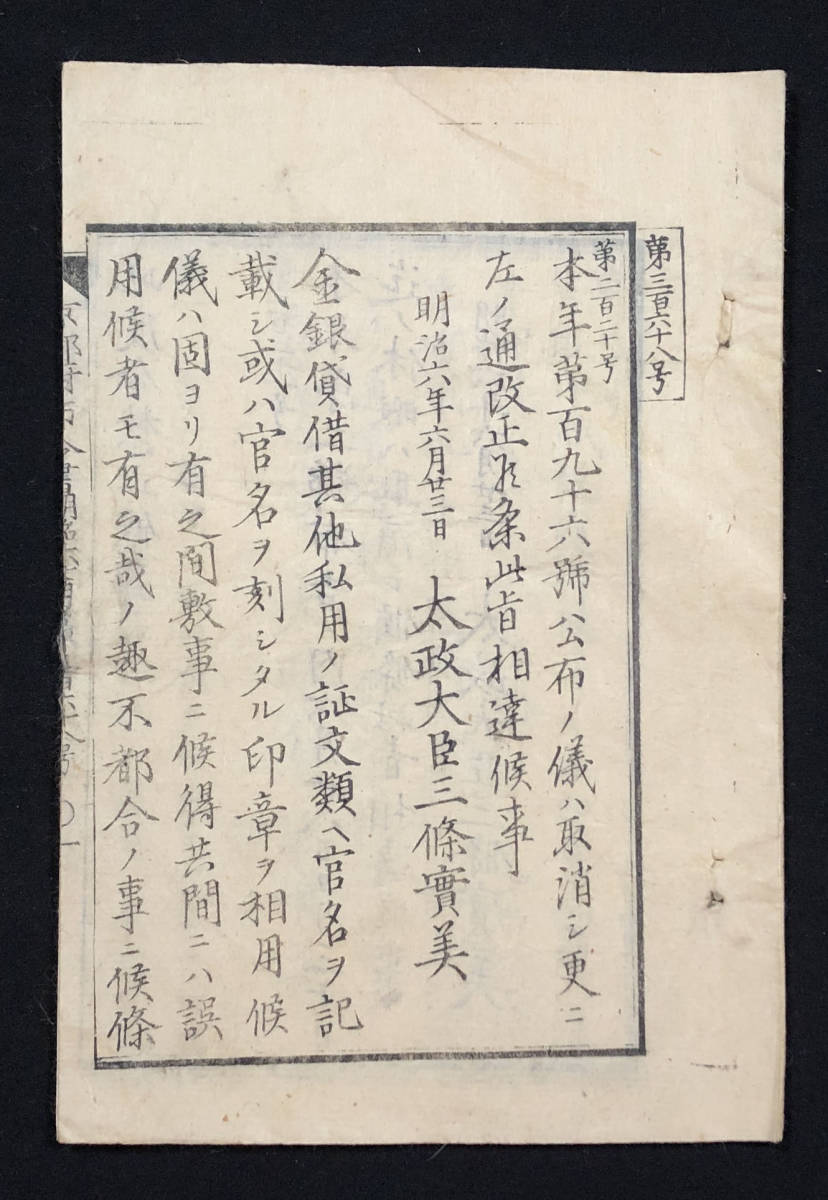 第三百六十八号
第二百二十号
本年第百九十六號公布ノ儀ハ取消シ更ニ
左ノ通改正候条此旨相達候事
明治六年六月廿三日 太政大臣三條實美
金銀貸借其他私用ノ証文類ヘ官名ヲ記
載シ或ハ官名ヲ刻シタル印章ヲ相用候
儀ハ固ヨリ有之間敷事ニ候得共間ニハ誤
用候者モ有之哉ノ趣不都合ノ事ニ候條